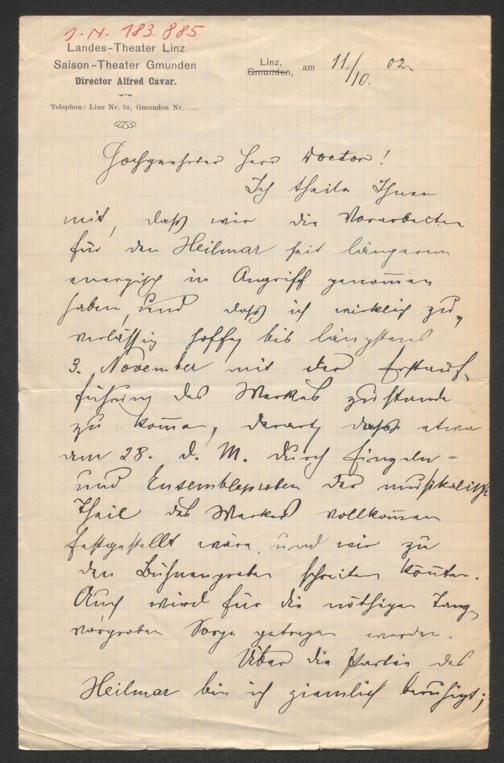 J.N. 183.885
Landes-Theater Linz
Saison-Theater Gmunden
Director Alfred Cavar.
Telephon: Linz Nr. 34, Gmunden Nr.
Linz,
Gmunden, am 11/10. 02
Hochgeehrter Herr Doctor!
Ich theile Ihnen
mit, daß wir die Vorarbeiten
für den Heilmar seit längerem
energisch in Angriff genommen
haben, und daß ich wirklich zu-
verlässig hoffe, bis längstens
3. November mit der Erstauf-
führung des Werkes zustande
zu kommen, derart, dass etwa
am 28. d. M. durch Einzeln-
und Ensembleproben der musikalische
Theil des Werkes vollkommen
festgestellt wäre und wir zu
den Bühnenproben schreiten könnten.
Auch wird für die nöthigen Tanz-
vorproben Sorge getragen werden.
Über die Partie des
Heilmar bin ich ziemlich beruhigt;